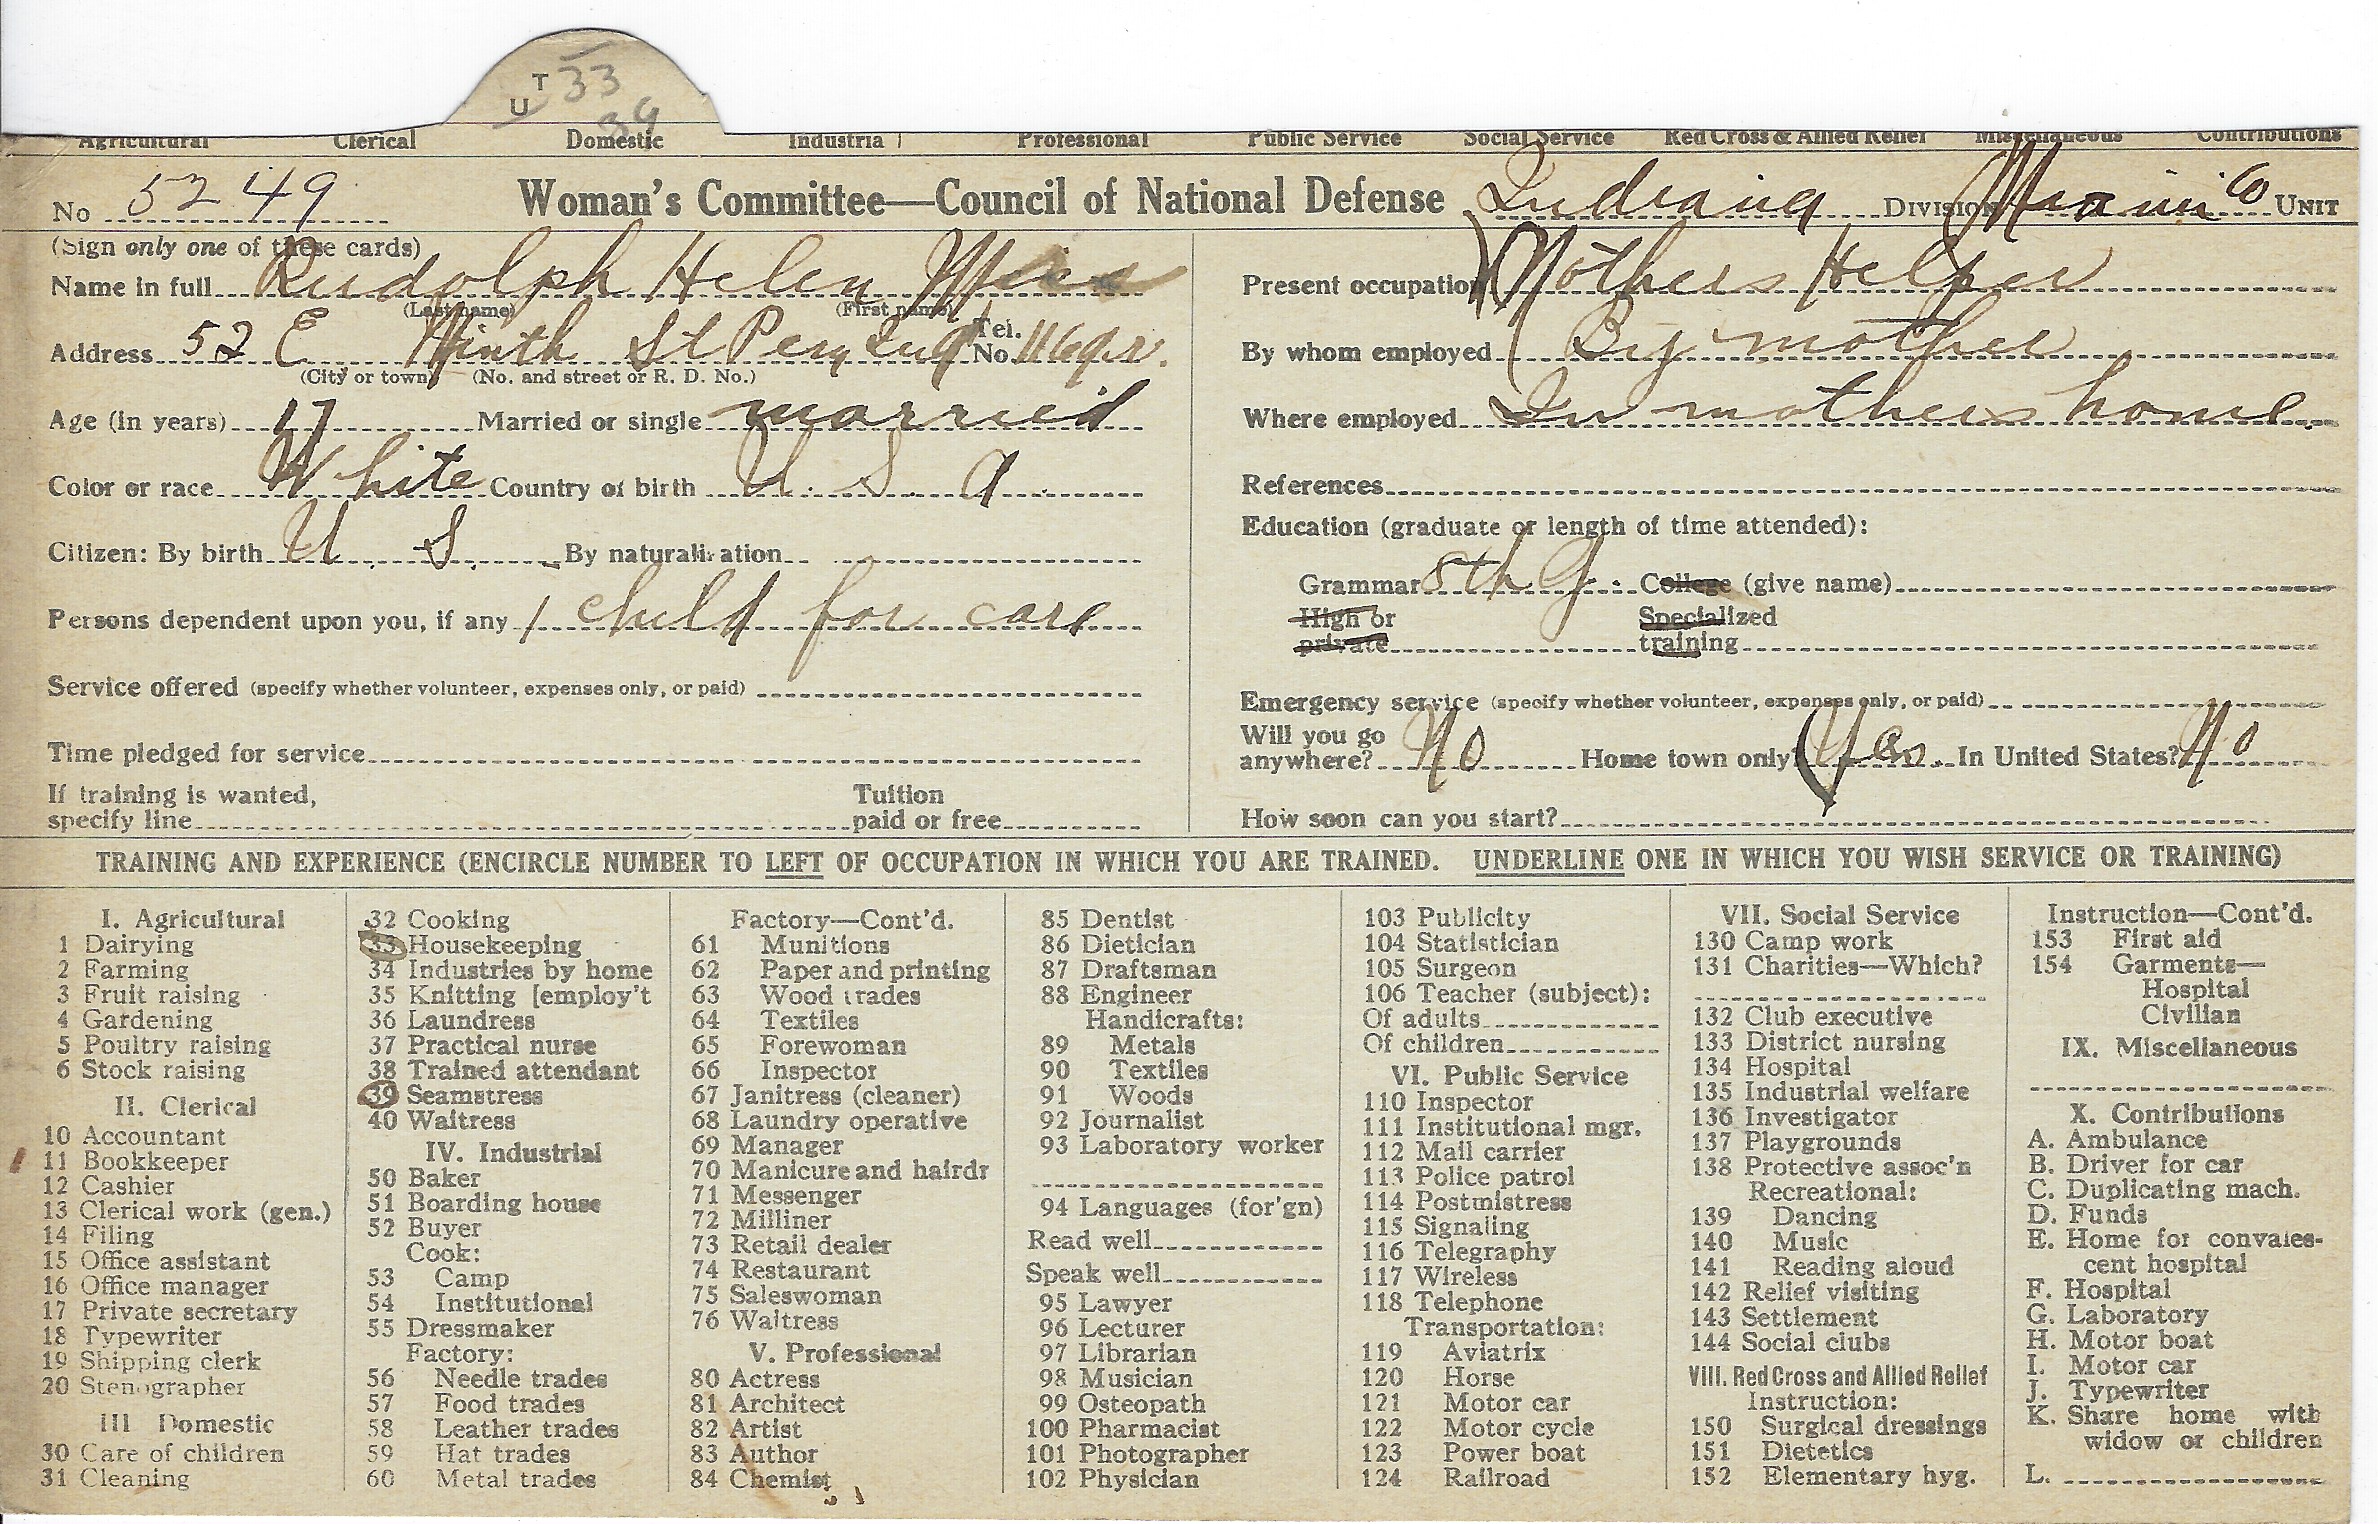 T 33
U 39
Agricultural Clerical Domestic Industrial Professional Public Service Social Service Red Cross & Allied Relief Miscellaneous Contributions
No 5249 Woman's Committee—Council of National Defense Indiana DIVISION Miami Co UNIT
(Sign only one of these cards)
Name in full Rudolph Helen
(Last name) (First name)
Address 52 E Ninth St Peru Ind Tel. No. 1169r.
(City or town) (No. and street or R. D. No.)
Age (in years) 17 Married or single married
Color or race White Country of birth U. S. A.
Citizen: By birth U. S. By naturalization
Persons dependent upon you, if any 1 child for care
Service offered (specify whether volunteer, expenses only, or paid)
Time pledged for service
If training is wanted, specify line Tuition paid or free
Present occupation Mothers Helper
By whom employed By mother
Where employed In mothers home.
References
Education (graduate or length of time attended):
Grammar 8th G. College (give name)
High or private Specialized training
Emergency service (specify whether volunteer, expenses only, or paid)
Will you go anywhere? No Home town only? Yes In United States? No
How soon can you start?
TRAINING AND EXPERIENCE (ENCIRCLE NUMBER TO LEFT OF OCCUPATION IN WHICH YOU ARE TRAINED. UNDERLINE ONE IN WHICH YOU WISH SERVICE OR TRAINING)
I. Agricultural
1 Dairying
2 Farming
3 Fruit raising
4 Gardening
5 Poultry raising
6 Stock raising
II. Clerical
10 Accountant
11 Bookkeeper
12 Cashier
13 Clerical work (gen.)
14 Filing
15 Office assistant
16 Office manager
17 Private secretary
18 Typewriter
19 Shipping clerk
20 Stenographer
III Domestic
30 Care of children
31 Cleaning
32 Cooking
33 Housekeeping
34 Industries by home
35 Knitting [employ't
36 Laundress
37 Practical nurse
38 Trained attendant
39 Seamstress
40 Waitress
IV. Industrial
50 Baker
51 Boarding house
52 Buyer
Cook:
53 Camp
54 Institutional
55 Dressmaker
Factory:
56 Needle trades
57 Food trades
58 Leather trades
59 Hat trades
60 Metal trades
Factory—Cont'd.
61 Munitions
62 Paper and printing
63 Wood trades
64 Textiles
65 Forewoman
66 Inspector
67 Janitress (cleaner)
68 Laundry operative
69 Manager
70 Manicure and hairdr
71 Messenger
72 Milliner
73 Retail dealer
74 Restaurant
75 Saleswoman
76 Waitress
V. Professional
80 Actress
81 Architect
82 Artist
83 Author
84 Chemist
85 Dentist
86 Dietician
87 Draftsman
88 Engineer
Handicrafts:
89 Metals
90 Textiles
91 Woods
92 Journalist
93 Laboratory worker
94 Languages (for'gn)
Read well
Speak well
95 Lawyer
96 Lecturer
97 Librarian
98 Musician
99 Osteopath
100 Pharmacist
101 Photographer
102 Physician
103 Publicity
104 Statistician
105 Surgeon
106 Teacher (subject):
Of adults
Of children
VI. Public Service
110 Inspector
111 Institutional mgr.
112 Mail carrier
113 Police patrol
114 Postmistress
115 Signaling
116 Telegraphy
117 Wireless
118 Telephone
Transportation:
119 Aviatrix
120 Horse
121 Motor car
122 Motor cycle
123 Power boat
124 Railroad
VII. Social Service
130 Camp work
131 Charities—Which?
132 Club executive
133 District nursing
134 Hospital
135 Industrial welfare
136 Investigator
137 Playgrounds
138 Protective assoc'n
Recreational:
139 Dancing
140 Music
141 Reading aloud
142 Relief visiting
143 Settlement
144 Social clubs
VIII. Red Cross and Allied Relief
Instruction:
150 Surgical dressings
151 Dietetics
152 Elementary hyg.
Instruction—Cont'd.
153 First aid
154 Garments—
Hospital
Civilian
IX. Miscellaneous
X. Contributions
A. Ambulance
B. Driver for car
C. Duplicating mach.
D. Funds
E. Home for convales-
cent hospital
F. Hospital
G. Laboratory
H. Motor boat
I. Motor car
J. Typewriter
K. Share home with
widow or children
L.